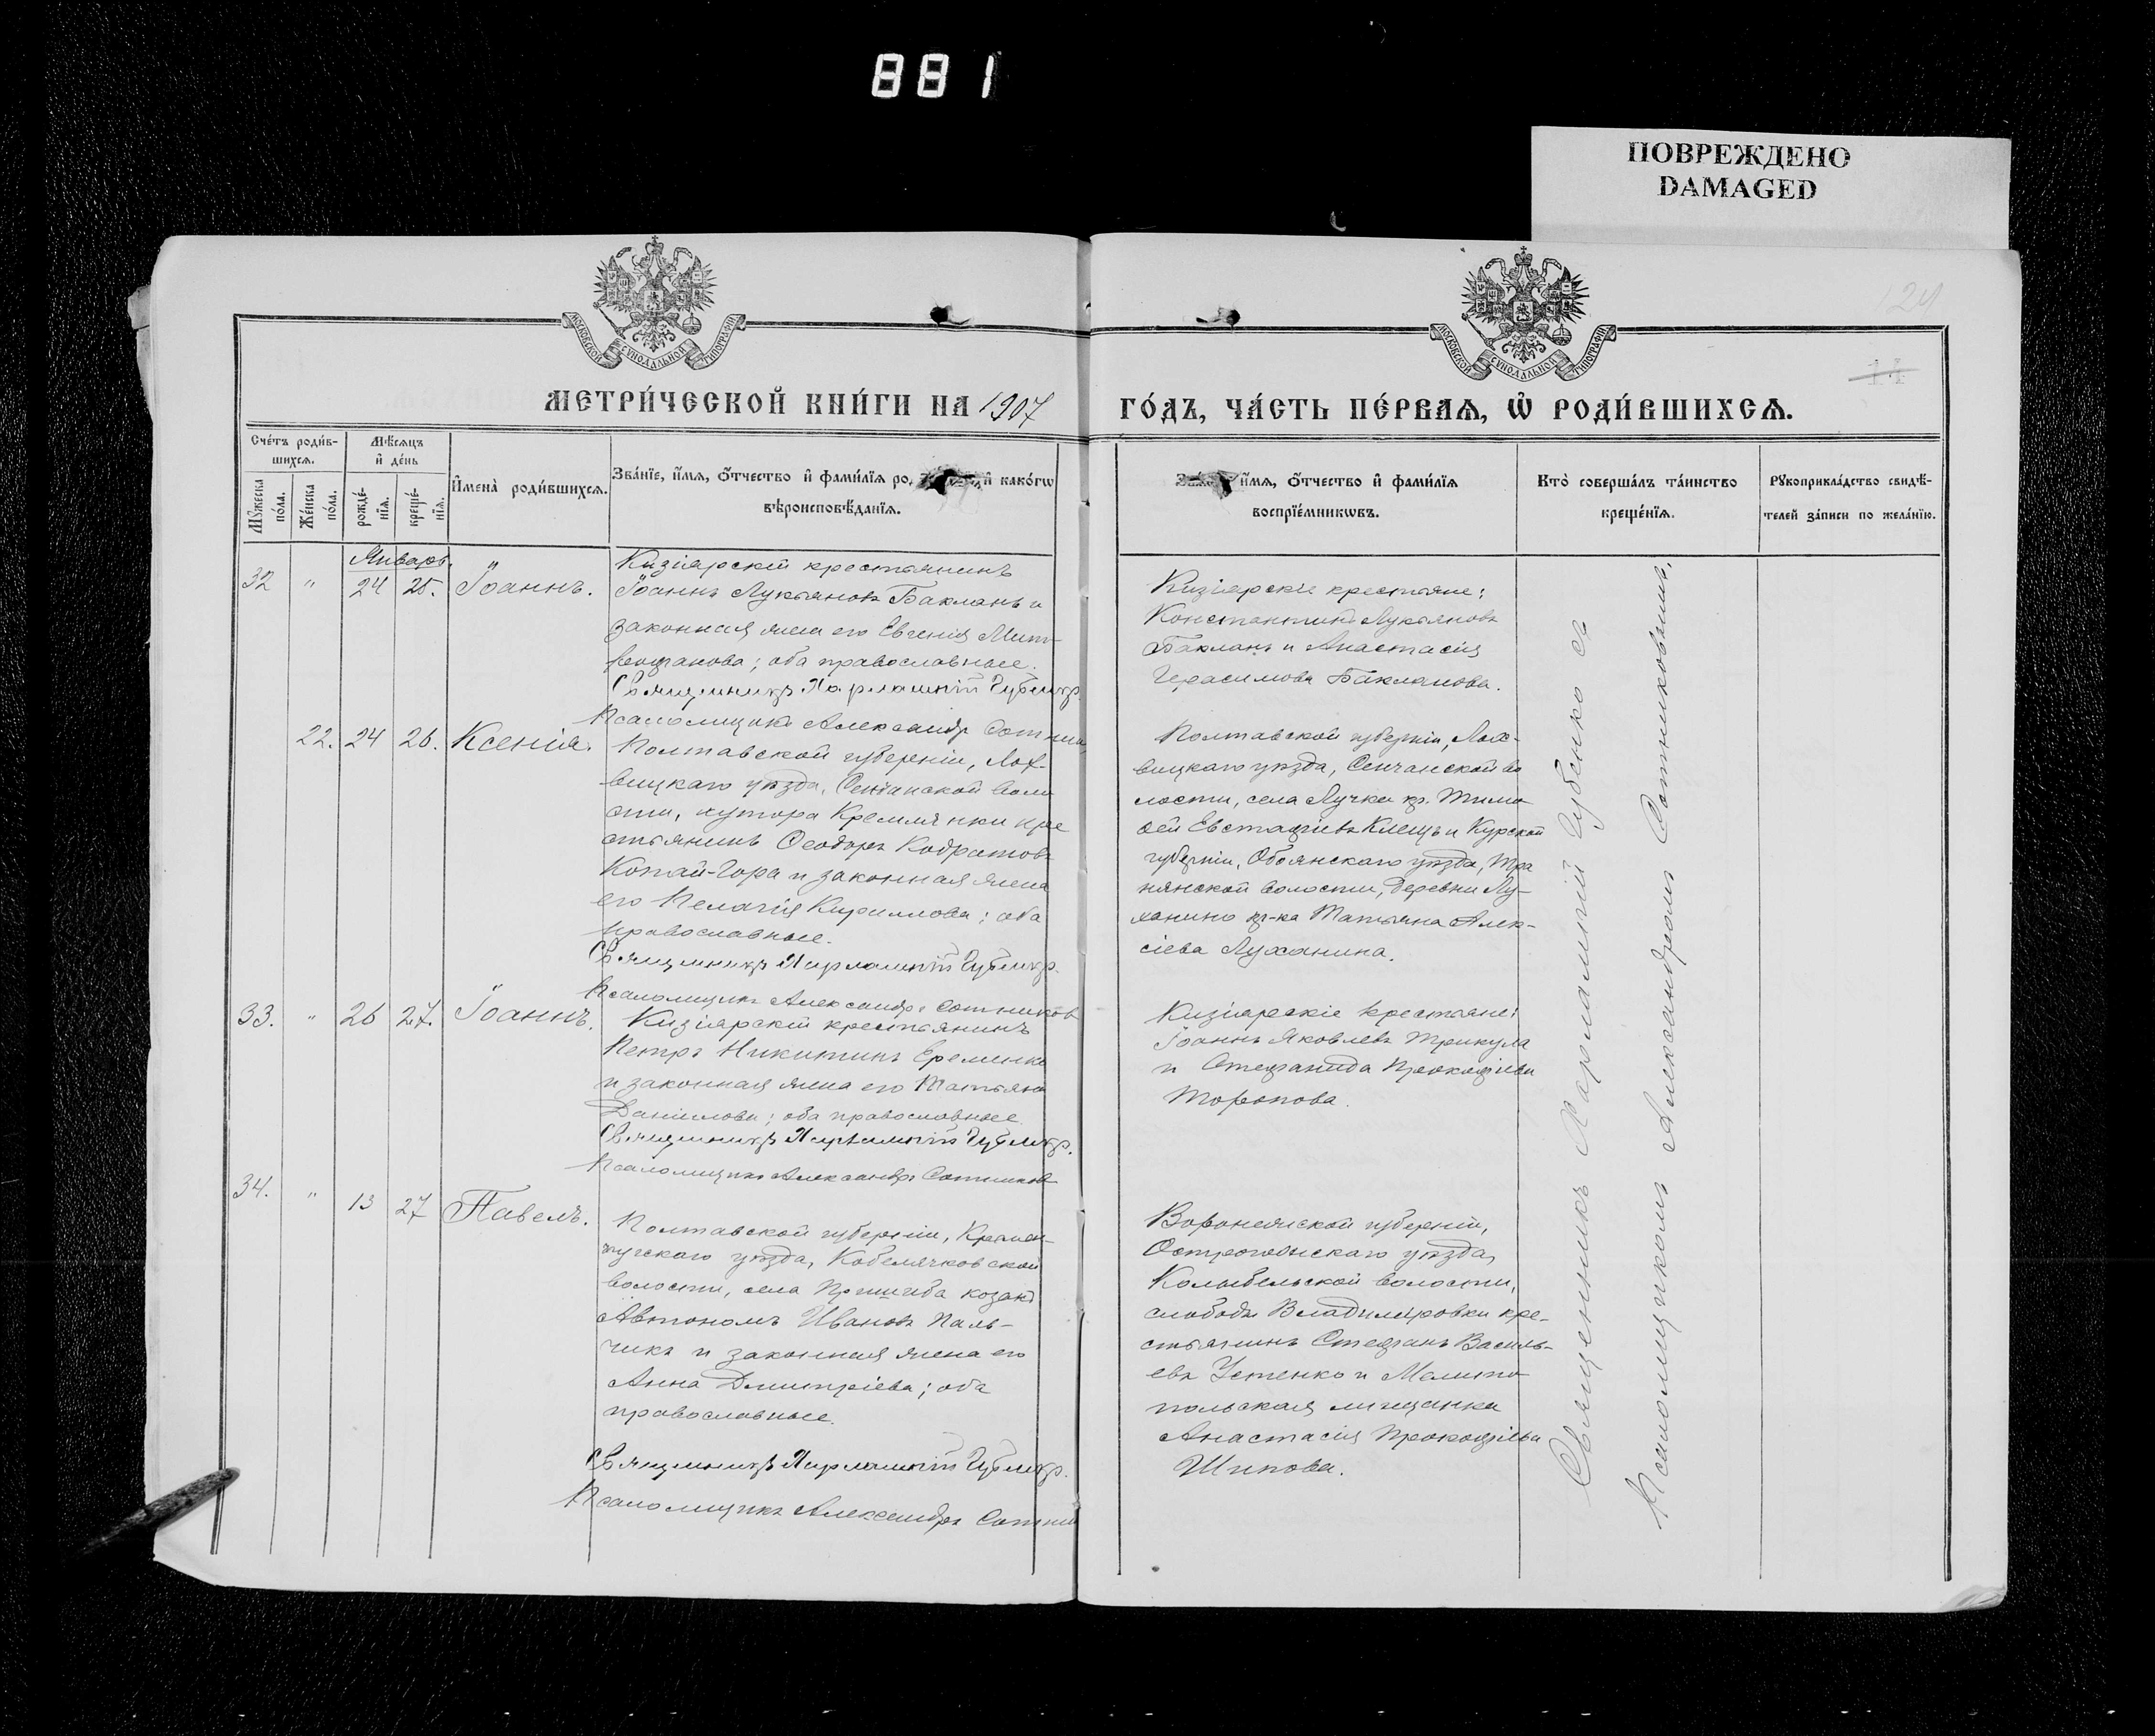 881
ПОВРЕЖДЕНО
DAMAGED
124
МОСКОВСКОЙ СѴНОДАЛЬНОЙ ТИПОГРАФІИ
МОСКОВСКОЙ СѴНОДАЛЬНОЙ ТИПОГРАФІИ
МЕТРИ́ЧЕСКОЙ КНИ́ГИ НА 1907
ГО́ДЪ, ЧА́СТЬ ПЕ́РВАѦ, Ѡ҆ РОДИ́ВШИХСѦ.
Сче́тъ роди́в-
шихсѧ.
Мѣ́сѧцъ
и҆ де́нь
Мꙋ́жеска по́ла.
Же́нска по́ла.
рожде́-
нїѧ.
креще́-
нїѧ.
И҆мена̀ роди́вшихсѧ.
Зва́нїе, и҆́мѧ, ѻ҆́тчество и҆ фами́лїѧ ро и҆ како́гѡ
вѣроисповѣ́данїѧ.
и҆́мѧ, ѻ҆́тчество и҆ фами́лїѧ
воспрїе́мникѡвъ.
Кто̀ соверша́лъ та́инство
креще́нїѧ.
Рꙋкоприкла́дство свидѣ́-
телей за́писи по жела́нїю.
Январь.
32 " 24 25. Іоаннъ.
Кизіярскій крестьянинъ
Іоаннъ Лукьяновъ Бакланъ и
законная жена его Евгенія Мит-
рофанова; оба православные.
Священникъ Харлампій Губенко.
Псаломщикъ Александръ Сотник
Кизіярскіе крестьяне:
Константинъ Лукьяновъ
Бакланъ и Анастасія
Герасимова Бакланова.
22. 24 26. Ксенія.
Полтавской губерніи, Лох-
вицкаго уѣзда, Сенчанской воло
сти, хутора Кремлянки кре
стьянинъ Ѳеодоръ Кодратовъ
Копай-Гора и законная жена
его Пелагія Кириллова; оба
православные.
Священникъ Харлампій Губенко.
Псаломщикъ Александръ Сотников
Полтавской губерніи, Лох-
вицкаго уѣзда, Сенчанской во
лости, села Лучки кр. Тимо
ѳей Евстафіевъ Клещъ и Курской
губерніи, Обоянскаго уѣзда,
нянской волости, деревни Лу-
ханино кр-ка Татьяна Алек-
сіева Луханина.
33. " 26 27. Іоаннъ.
Кизіярскій крестьянинъ
Петръ Никитинъ Еременко
и законная жена его Татьяна
Даніилова; оба православные.
Священникъ Харлампій Губенко.
Псаломщикъ Александръ Сотников
Кизіярскіе крестьяне:
Іоаннъ Яковлевъ Трикула
и Стефанида Прокофіева
Торопова.
34. " 13 27 Павелъ.
Полтавской губерніи, Кремен-
чугскаго уѣзда, Кобелячковской
волости, села Пришиба козакъ
Автономъ Ивановъ Паль-
чикъ и законная жена его
Анна Димитріева; оба
православные.
Священникъ Харлампій Губенко.
Псаломщикъ Александръ Сотни
Воронежской губерніи,
Острогожскаго уѣзда,
Колыбельской волости,
слободы Владимировки кре-
стьянинъ Стефанъ Василь-
евъ Устенко и Мелито
польская мѣщанка
Анастасія Прокофіева
Шипова.
Священникъ Харлампій Губенко съ
Псаломщикомъ Александромъ Сотниковымъ.